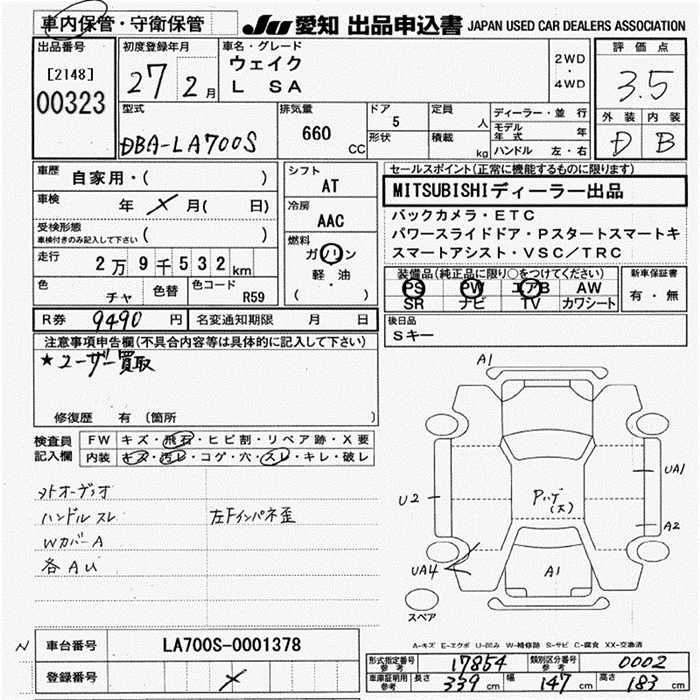 車内保管・守衛保管
JU 愛知 出品申込書 JAPAN USED CAR DEALERS ASSOCIATION
出品番号 初度登録年月 車名・グレード 評価点
[2148] 27 2月 ウェイク 2WD
・
00323 L SA 4WD 3.5
型式 排気量 ドア 5 定員 人 ディーラー・並行 外装 内装
DBA-LA700S 660 CC 形状 積載 kg モデル年式 年 D B
ハンドル 左・右
車歴 自家用・( ) シフト AT
セールスポイント(正常に機能するものに限ります)
車検 年 メ 月( 日) 冷房 AAC
MITSUBISHIディーラー出品
受検形態 ( )
車検付きのみ記入して下さい
バックカメラ・ETC
燃料 ガソリン・軽・油 ( )
パワースライドドア・Pスタートスマートキ
走行 2万9千532km
スマートアシスト・VSC/TRC
色 チャ 色替 色コード R59
装備品(純正品に限り○をつけてください) 新車保証書
PS PW エアB AW 有・無
SR ナビ TV カワシート
R券 9490 円 名変通知期限 月 日
後日品
Sキー
注意事項申告欄(不具合内容等は具体的に記入して下さい)
★ユーザー買取
修復歴 有 (箇所 )
検査員記入欄 FW キズ・飛石・ヒビ割・リペア跡・X要
内装 キズ・汚レ・コゲ・穴・スレ・キレ・破レ
メトオーディオ
ハンドルスレ 左Fインパネ歪
WカバーA
各AU
A1
UA1
U2
Pハゲ
(大)
A2
UA4
A1
スペア
A-キズ E-エクボ U-凹み W-補修跡 S-サビ C-腐食 XX-交換済
N 車台番号 LA700S-0001378
登録番号 メ
形式指定番号参考 17854 類別区分番号参考 0002
車庫証明用参考 長さ 339cm 幅 147cm 高さ 183cm